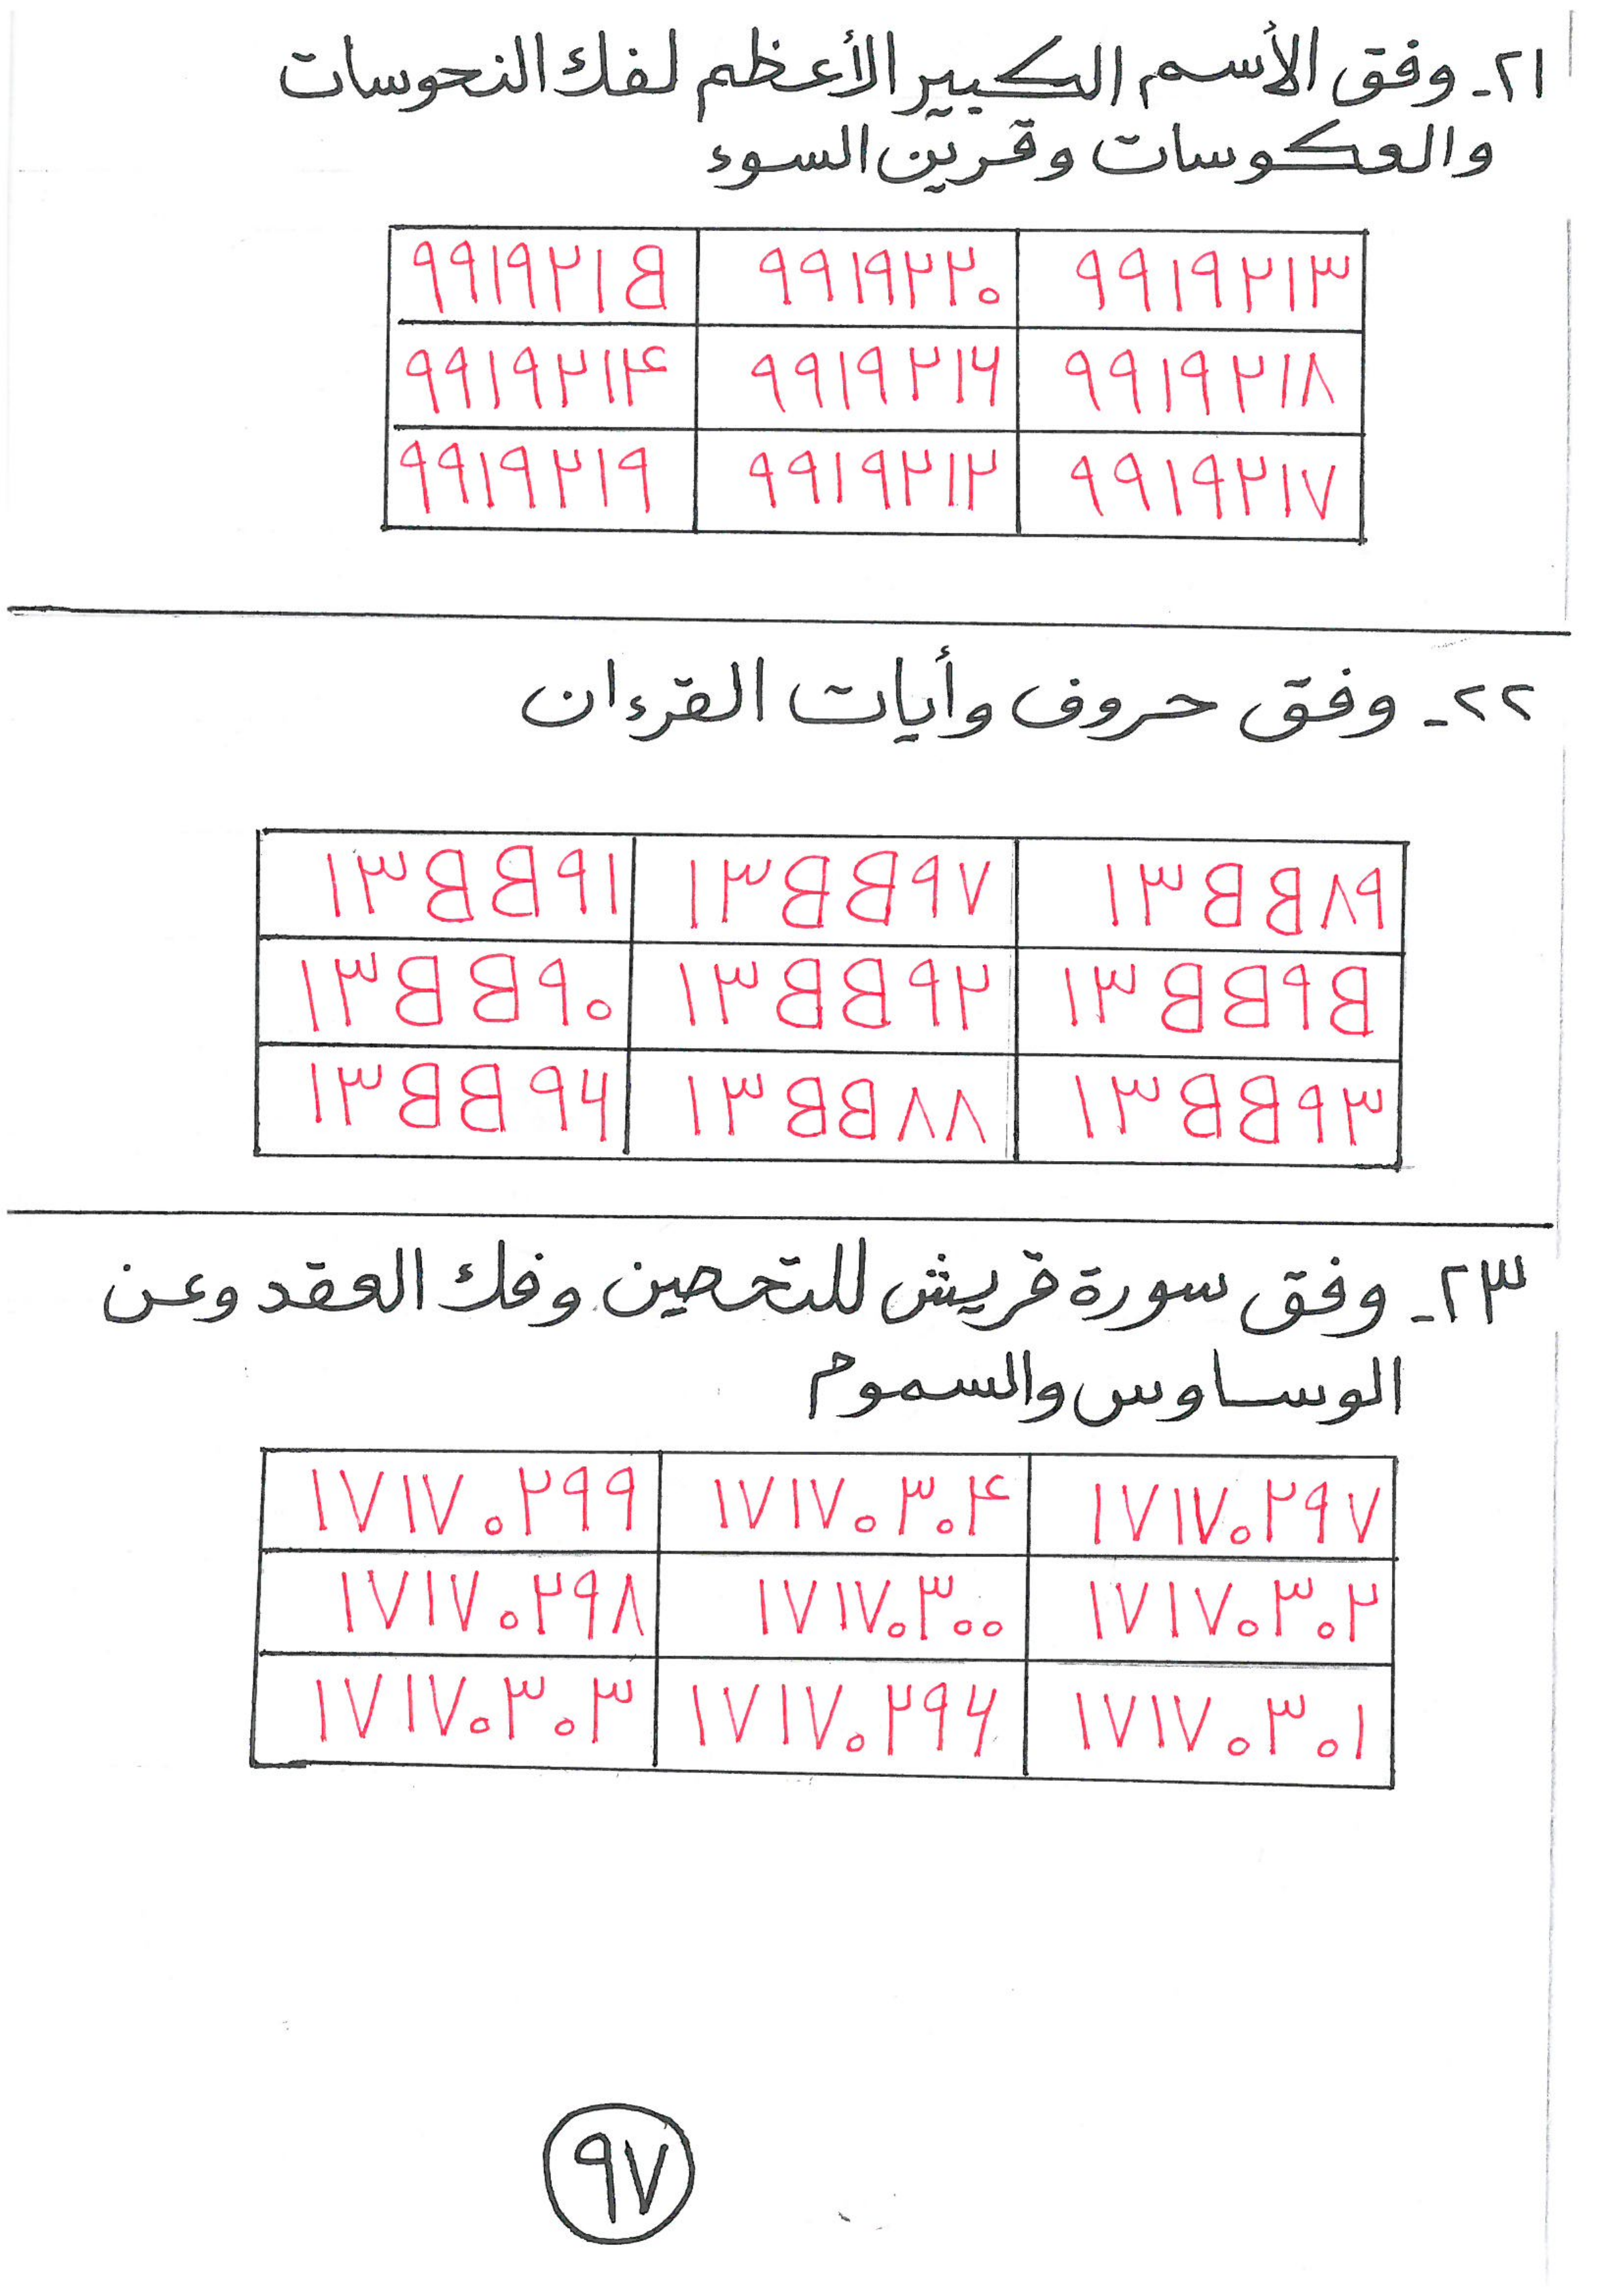 ٢١- وفق الأسم الكبير الأعظم لفك النحوسات
والعكوسات وقرين السوء
٩٩١٩٢١٣ ٩٩١٩٢٢٠ ٩٩١٩٢١٥
٩٩١٩٢١٨ ٩٩١٩٢١٦ ٩٩١٩٢١٤
٩٩١٩٢١٧ ٩٩١٩٢١٢ ٩٩١٩٢١٩
٢٢- وفق حروف وأيات القرءان
١٣٥٥٨٩ ١٣٥٥٩٧ ١٣٥٥٩١
١٣٥٥٩٥ ١٣٥٥٩٢ ١٣٥٥٩٠
١٣٥٥٩٣ ١٣٥٥٨٨ ١٣٥٥٩٦
٢٣- وفق سورة قريش للتحصين وفك العقد وعن
الوساوس والسموم
١٧١٧٠٢٩٧ ١٧١٧٠٣٠٤ ١٧١٧٠٢٩٩
١٧١٧٠٣٠٢ ١٧١٧٠٣٠٠ ١٧١٧٠٢٩٨
١٧١٧٠٣٠١ ١٧١٧٠٢٩٦ ١٧١٧٠٣٠٣
٩٧